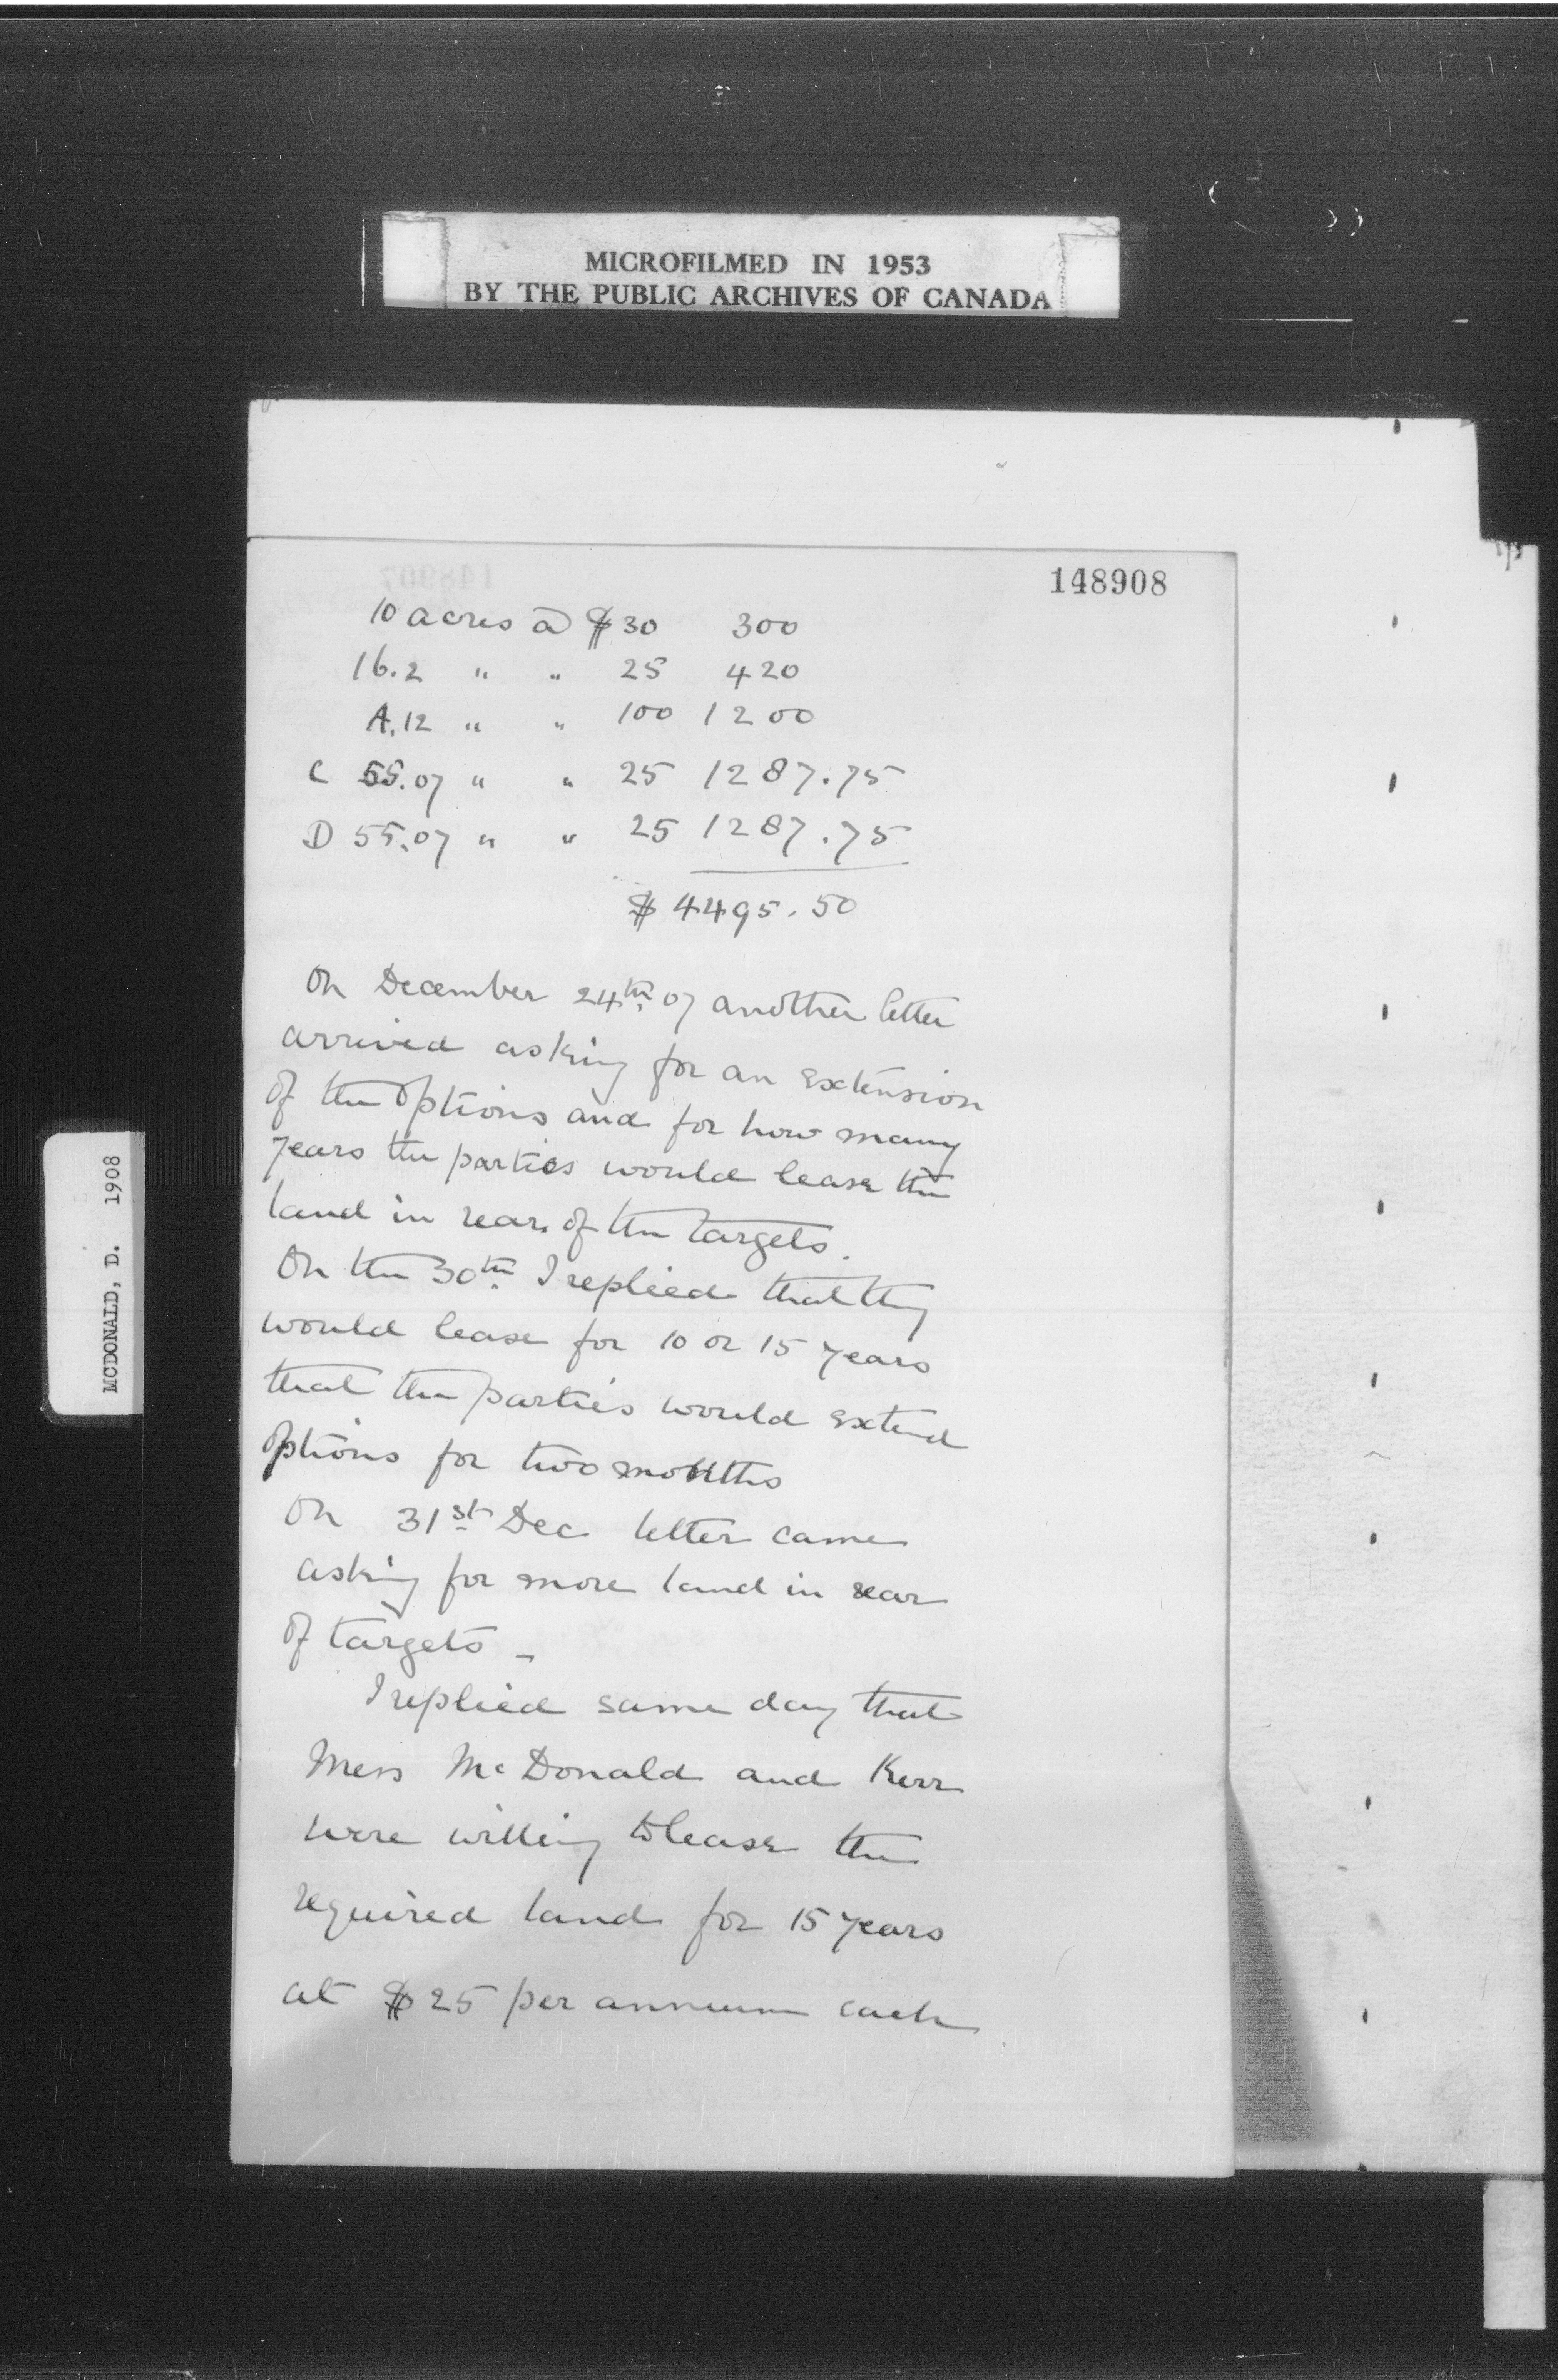 MICROFILMED IN 1953
BY THE PUBLIC ARCHIVES OF CANADA
148908
10 acres @ $30 300
16.2 " " 25 420
A. 12 " " 100 1200
C 55.07 " " 25 1287.75
D 55.07 " " 25 1287.75
$ 4495.50
On December 24th 07 another letter
arrived asking for an extension
of the options and for how many
years the parties would lease the
land in rear of the targets.
On the 30th I replied that they
would lease for 10 or 15 years
that the parties would extend
options for two months
On 31st Dec letter came
asking for more land in rear
of targets -
I replied same day that
Mess McDonald and Kerr
were willing to lease the
required land for 15 years
at $25 per annum each
MCDONALD, D. 1908